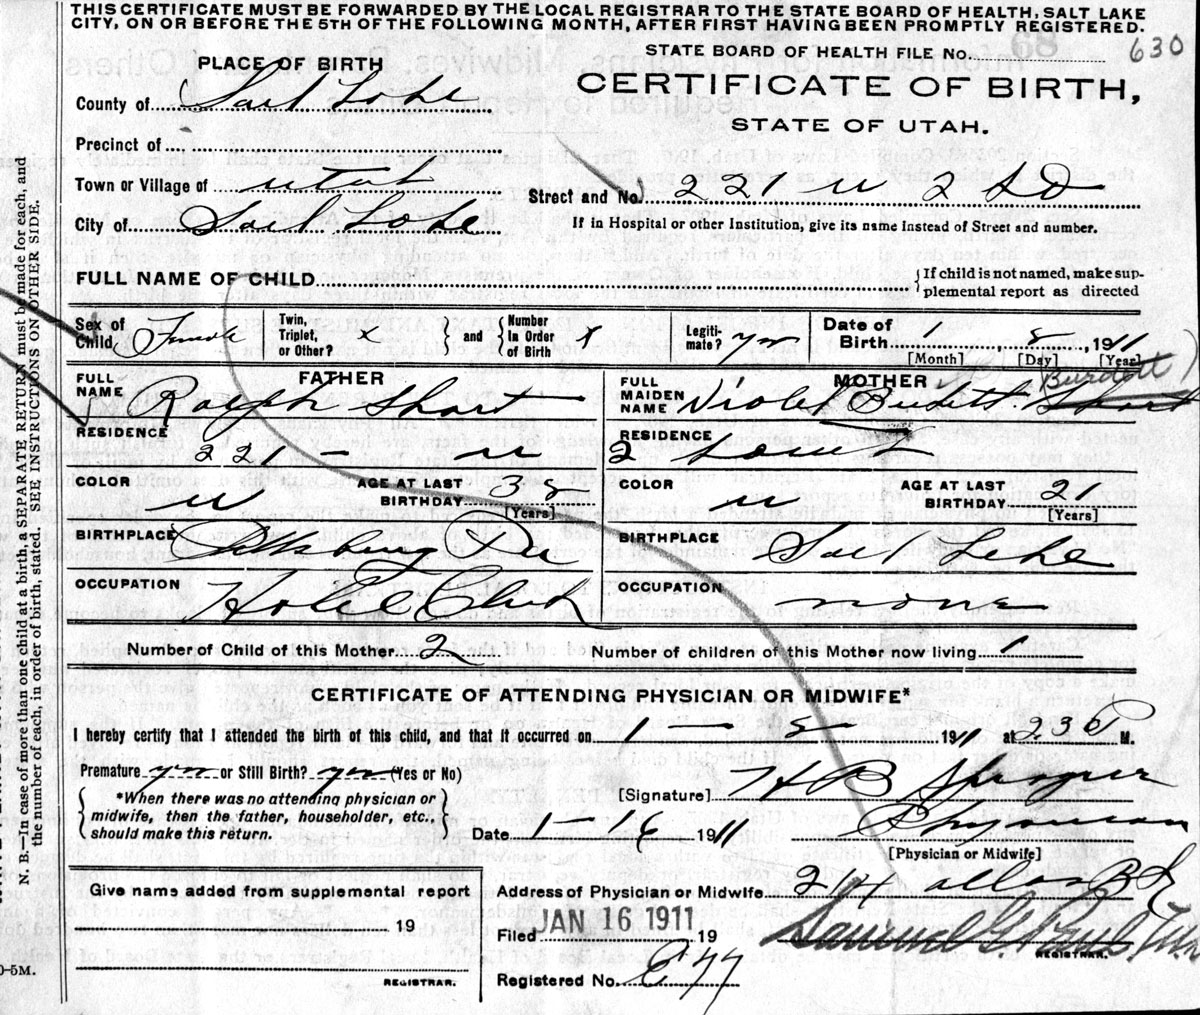 THIS CERTIFICATE MUST BE FORWARDED BY THE LOCAL REGISTRAR TO THE STATE BOARD OF HEALTH, SALT LAKE
CITY, ON OR BEFORE THE 5TH OF THE FOLLOWING MONTH, AFTER FIRST HAVING BEEN PROMPTLY REGISTERED.
STATE BOARD OF HEALTH FILE No. 630
PLACE OF BIRTH
CERTIFICATE OF BIRTH,
STATE OF UTAH.
County of Salt Lake
Precinct of
Town or Village of Utah
Street and No. 221 W 2 So
City of Salt Lake
If in Hospital or other Institution, give its name instead of Street and number.
FULL NAME OF CHILD
If child is not named, make sup-
plemental report as directed
Sex of Child Female
Twin, Triplet, or Other?
and Number In Order of Birth
Legiti-mate? yes
Date of Birth 1 8, 1911
[Month] [Day] [Year]
FATHER
FULL NAME Ralph Short
MOTHER
FULL MAIDEN NAME Violet Burdett Short
Burdett
RESIDENCE 221 - W
RESIDENCE 2 South
COLOR W
AGE AT LAST BIRTHDAY 38 [Years]
COLOR W
AGE AT LAST BIRTHDAY 21 [Years]
BIRTHPLACE Pittsburg Pa
BIRTHPLACE Salt Lake
OCCUPATION Hotel Clerk
OCCUPATION none
Number of Child of this Mother 2
Number of children of this Mother now living 1
CERTIFICATE OF ATTENDING PHYSICIAN OR MIDWIFE*
I hereby certify that I attended the birth of this child, and that it occurred on 1 - 8 1911 at 230 P M.
Premature yes or Still Birth? yes (Yes or No)
*When there was no attending physician or
midwife, then the father, householder, etc.,
should make this return.
[Signature] H B Sprague
Date 1-16 1911
Physician
[Physician or Midwife]
Give name added from supplemental report
19
REGISTRAR.
Address of Physician or Midwife
Filed JAN 16 1911 19
Samuel G. Paul
REGISTRAR.
Registered No. 677
N. B.—In case of more than one child at a birth, a SEPARATE RETURN must be made for each, and
the number of each, in order of birth, stated. SEE INSTRUCTIONS ON OTHER SIDE.